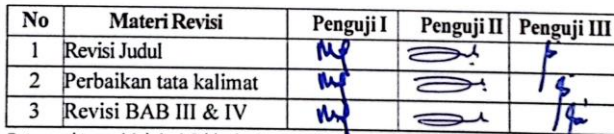 No Materi Revisi Penguji I Penguji II Penguji III
1 Revisi Judul
2 Perbaikan tata kalimat
3 Revisi BAB III & IV